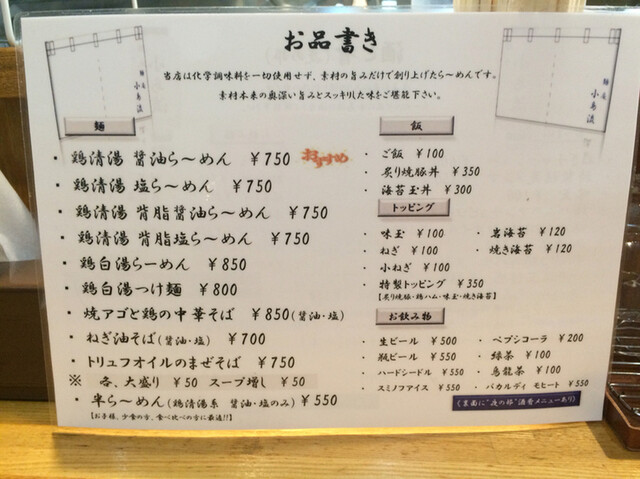 お品書き
当店は化学調味料を一切使用せず、素材の旨みだけで創り上げたら〜めんです。
素材本来の奥深い旨みとスッキリした味をご堪能下さい。
麺
・鶏清湯 醤油ら〜めん ￥750 おすすめ
・鶏清湯 塩ら〜めん ￥750
・鶏清湯 背脂醤油ら〜めん ￥750
・鶏清湯 背脂塩ら〜めん ￥750
・鶏白湯らーめん ￥850
・鶏白湯つけ麺 ￥800
・焼アゴと鶏の中華そば ￥850(醤油・塩)
・ねぎ油そば(醤油・塩) ￥700
・トリュフオイルのまぜそば ￥750
※ 各、大盛り ￥50 スープ増し ￥50
・半ら〜めん(鶏清湯系 醤油・塩のみ) ￥550
【お子様、少食の方、食べ比べの方に最適!!】
飯
・ご飯 ￥100
・炙り焼豚丼 ￥350
・海苔玉丼 ￥300
トッピング
・味玉 ￥100
・ねぎ ￥100
・小ねぎ ￥100
・特製トッピング ￥350
【炙り焼豚・鶏ハム・味玉・焼き海苔】
・岩海苔 ￥120
・焼き海苔 ￥120
お飲み物
・生ビール ￥500
・瓶ビール ￥550
・ハードシードル ￥550
・スミノフアイス ￥550
・ペプシコーラ ￥200
・緑茶 ￥100
・烏龍茶 ￥100
・バカルディ モヒート ￥550
(裏面に"夜の部"酒肴メニューあり)